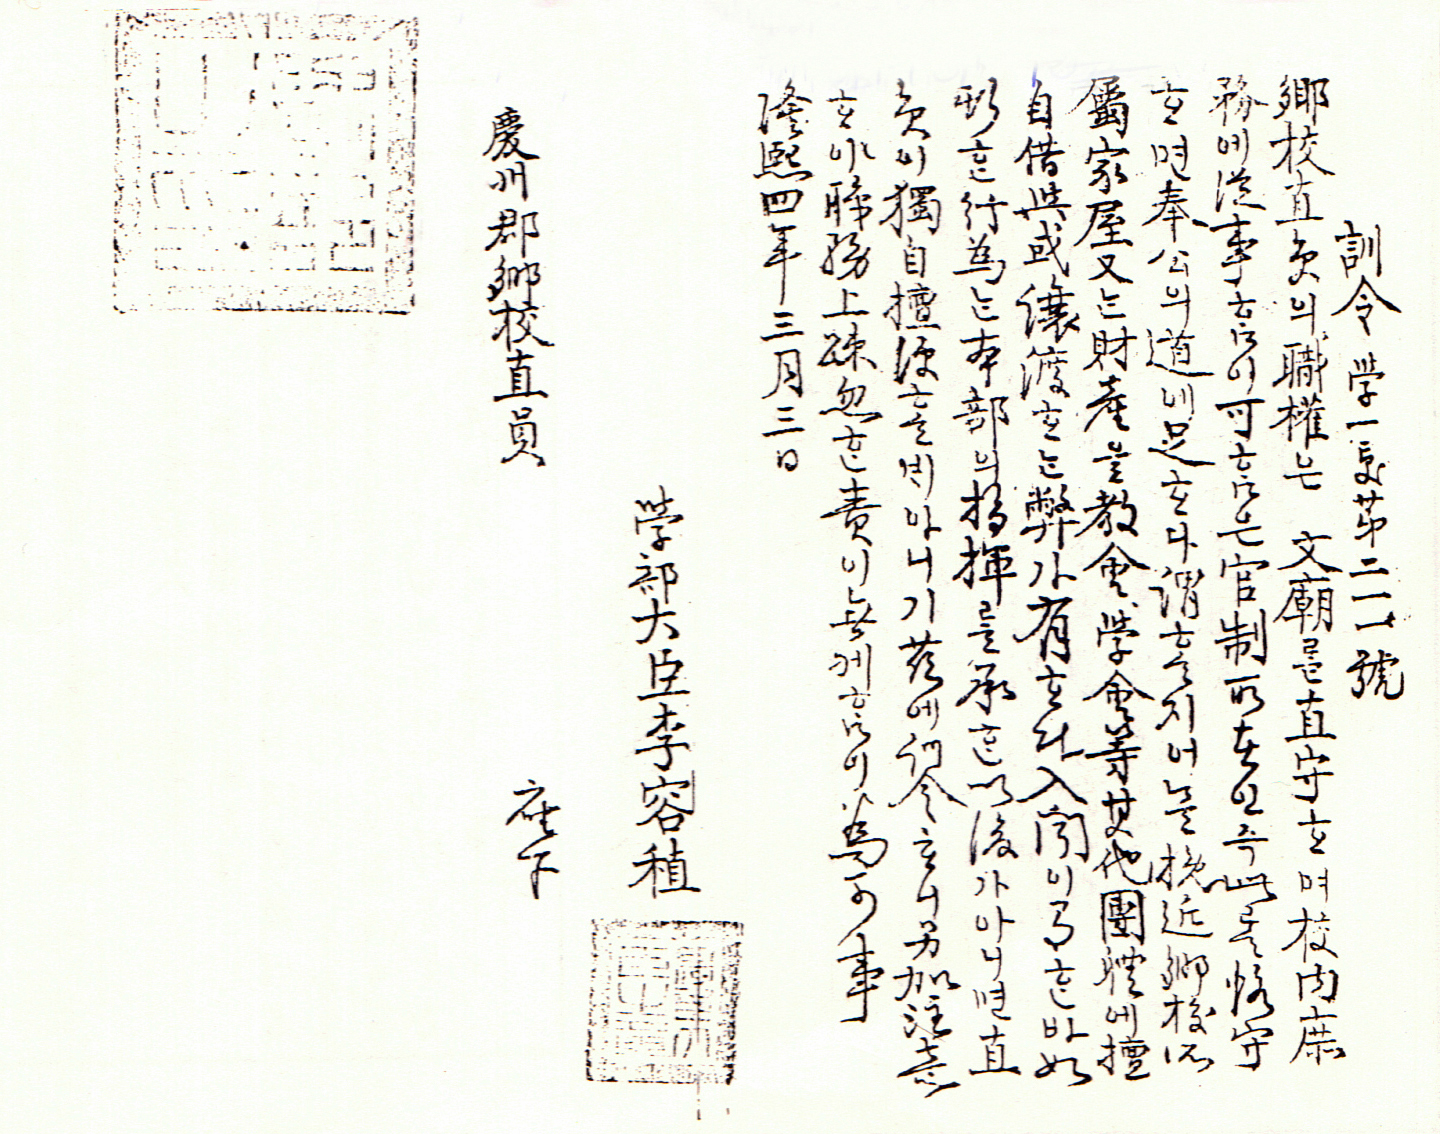 訓令 學一發第二一一號
鄕校直員의 職權은 文廟를 直守ᄒᆞ며 校內庶
務에 從事ᄒᆞᆷ이 可ᄒᆞᆷ은 官制所在인즉 此를 恪守
ᄒᆞ면 奉公의 道에 足ᄒᆞ다 謂ᄒᆞᆯ지어ᄂᆞᆯ 挽近 鄕校所
屬家屋 又ᄂᆞᆫ 財産을 敎會 學會等 其他 團體에 擅
自借與 或 讓渡ᄒᆞᄂᆞᆫ 弊가 有ᄒᆞ다 入聞이고 ᄒᆞᆫ바 如
斯ᄒᆞᆫ 行爲ᄂᆞᆫ 本部의 指揮를 承ᄒᆞᆫ 以後가 아니면 直
員이 獨自擅便ᄒᆞᆯ 배 아니기 玆에 訓令ᄒᆞ니 另加注意
ᄒᆞ야 職務上 疎忽ᄒᆞᆫ 責이 無케ᄒᆞᆷ이 爲可事
隆熙四年 三月 三日
學部大臣 李容稙
慶州郡鄕校直員 座下